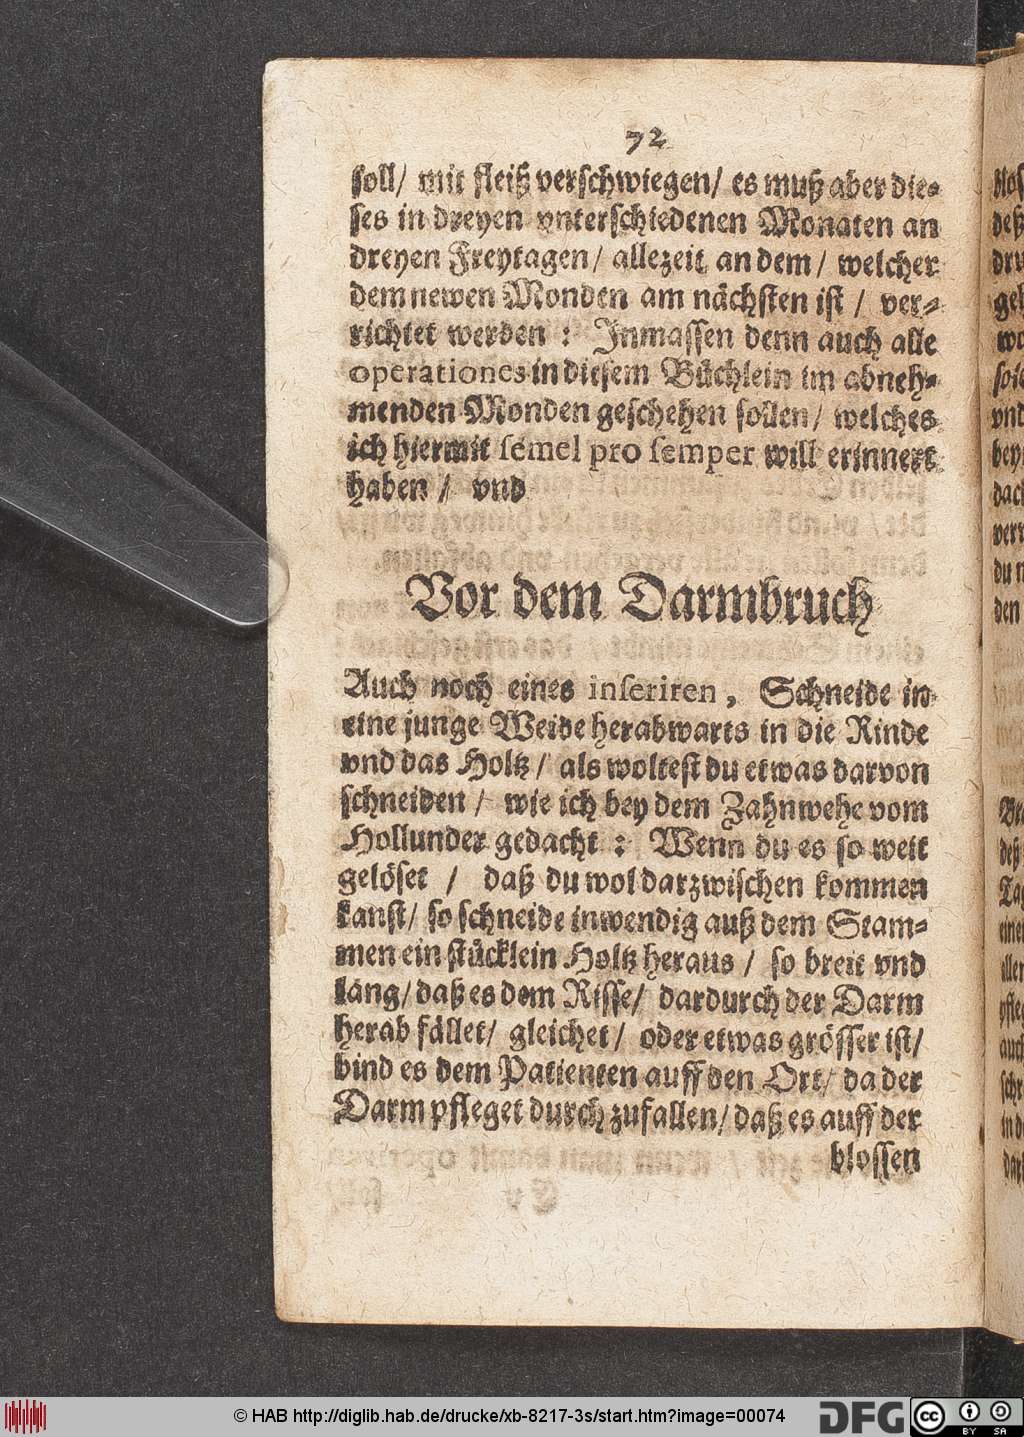 72
soll/ mit fleiß verschwiegen/ es muß aber die-
ses in dreyen vnterschiedenen Monaten an
dreyen Freytagen/ allezeit an dem/ welcher
dem newen Monden am nächsten ist / ver-
richtet werden : Inmassen denn auch alle
operationes in diesem Büchlein im abneh-
menden Monden geschehen sollen/ welches
ich hiermit semel pro semper will erinnert
haben / vnd
Vor dem Darmbruch
Auch noch eines inseriren, Schneide in
eine junge Weide herabwarts in die Rinde
vnd das Holtz / als woltest du etwas darvon
schneiden / wie ich bey dem Zahnwehe vom
Hollunder gedacht : Wenn du es so weit
gelöset / daß du wol darzwischen kommen
kanst/ so schneide inwendig auß dem Stam-
men ein stücklein Holtz heraus / so breit vnd
lang/ daß es dem Risse/ dardurch der Darm
herab fället/ gleichet/ oder etwas grösser ist/
bind es dem Patienten auff den Ort/ da der
Darm pfleget durch zufallen/ daß es auff der
blossen
© HAB http://diglib.hab.de/drucke/xb-8217-3s/start.htm?image=00074
DFG
cc BY SA